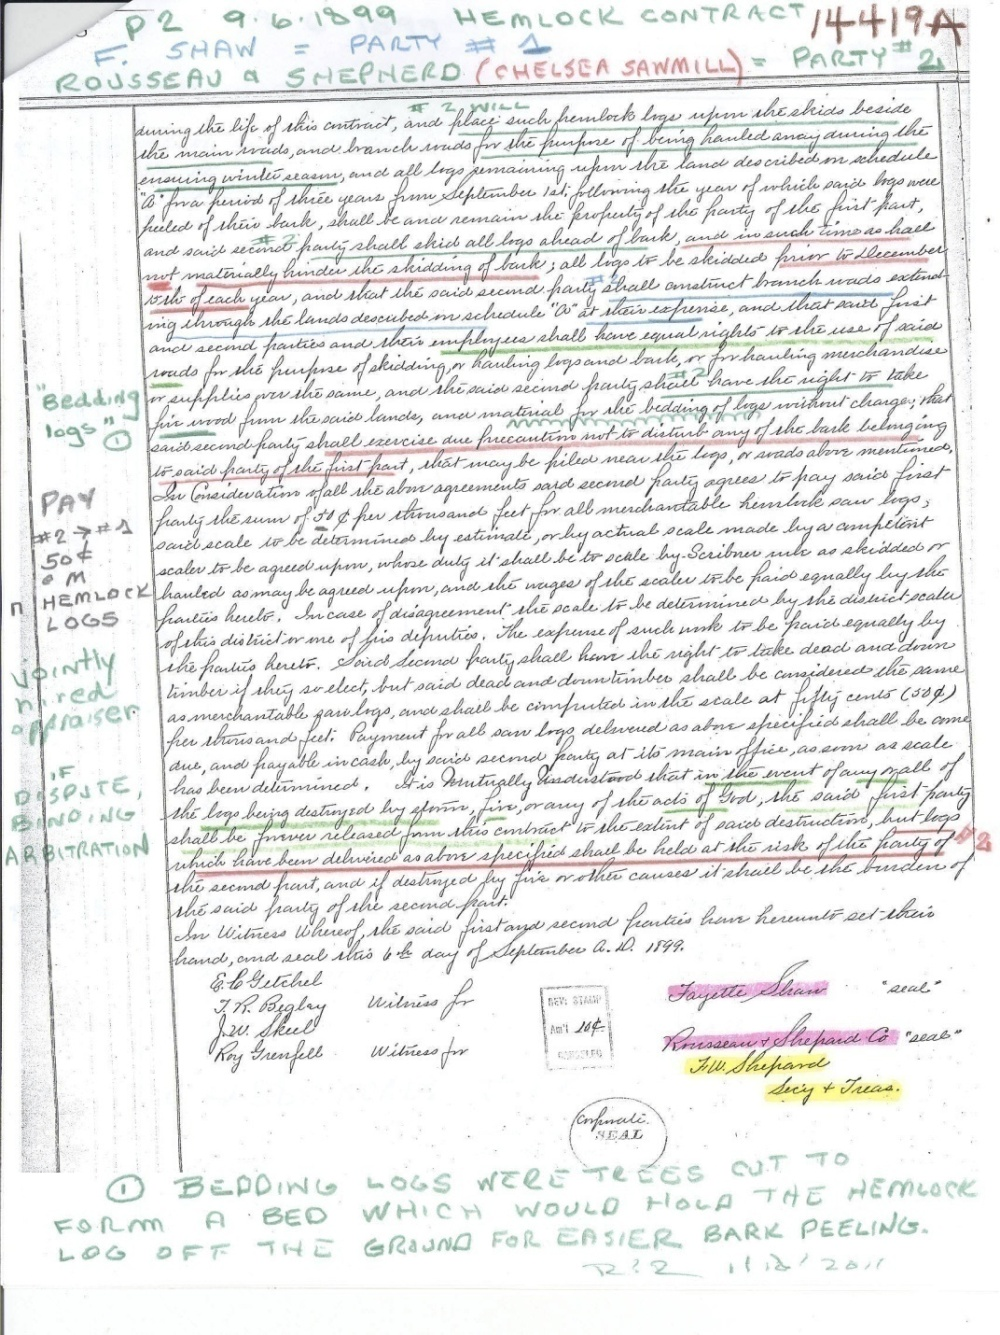 P 2 9.6.1899 HEMLOCK CONTRACT 14419A
F. SHAW = PARTY # 1
ROUSSEAU & SHEPHERD (CHELSEA SAWMILL) = PARTY # 2
# 2 WILL
during the life of this contract, and place such hemlock logs upon the skids beside
the main roads, and branch roads for the purpose of being hauled away during the
ensuring winter season, and all logs remaining upon the land described in schedule
"A" for a period of three years from September 1st, following the year of which said logs were
peeled of their bark, shall be and remain the property of the party of the first part,
# 2
and said second party shall skid all logs ahead of bark, and in such time as shall
not materially hinder the skidding of bark; all logs to be skidded prior to December
of each year, and that the said second party shall construct branch roads extend
ing through the lands described in schedule "A" at their expense, and that said first
and second parties and their employees shall have equal rights to the use of said
roads for the purpose of skidding, or hauling logs and bark, or for hauling merchandise
# 2
or supplies over the same, and the said second party shall have the right to take
fire wood from the said lands, and material for the bedding of logs without charge; that
said second party shall exercise due precaution not to disturb any of the bark belonging
to said party of the first part, that may be piled near the logs, or roads above mentioned.
In Consideration of all the above agreements said second party agrees to pay said first
party the sum of 50¢ per thousand feet for all merchantable hemlock saw logs;
said scale to be determined by estimate, or by actual scale made by a competent
scaler to be agreed upon, whose duty it shall be to scale by Scribner rule as skidded or
hauled as may be agreed upon, and the wages of the scaler to be paid equally by the
parties hereto. In case of disagreement the scale to be determined by the district scaler
of this district or one of his deputies. The expense of such work to be paid equally by
the parties hereto. Said Second party shall have the right to take dead and down
timber if they so elect, but said dead and down timber shall be considered the same
as merchantable saw logs, and shall be computed in the scale at fifty cents (50¢)
per thousand feet. Payment for all saw logs delivered as above specified shall be come
due, and payable in cash, by said second party at its main office, as soon as scale
has been determined. It is Mutually Understood that in the event of any or all of
the logs being destroyed by storm, fire, or any of the acts of God, the said first party
shall be forever released from this contract to the extent of said destruction, but logs
which have been delivered as above specified shall be held at the risk of the party of
# 2
the second part, and if destroyed by fire or other causes it shall be the burden of
the said party of the second part.
In Witness Whereof, the said first and second parties have hereunto set their
hand, and seal this 6th day of September A.D. 1899.
"Bedding
logs" ①
PAY
#2 → #1
50¢
M
HEMLOCK
LOGS
Jointly
hired
appraiser
IF
DISPUTE,
BINDING
ARBITRATION
E. C. Getchel
T. R. Begley Witness for
J. W. Skeel
Roy Grenfell Witness for
REV. STAMP
Am't 10¢
CANCELED
Fayette Shaw "seal"
Rousseau & Shepard Co "seal"
F. W. Shepard
Sec'y & Treas.
Corporate
SEAL
① BEDDING LOGS WERE TREES CUT TO
FORM A BED WHICH WOULD HOLD THE HEMLOCK
LOG OFF THE GROUND FOR EASIER BARK PEELING.
2011